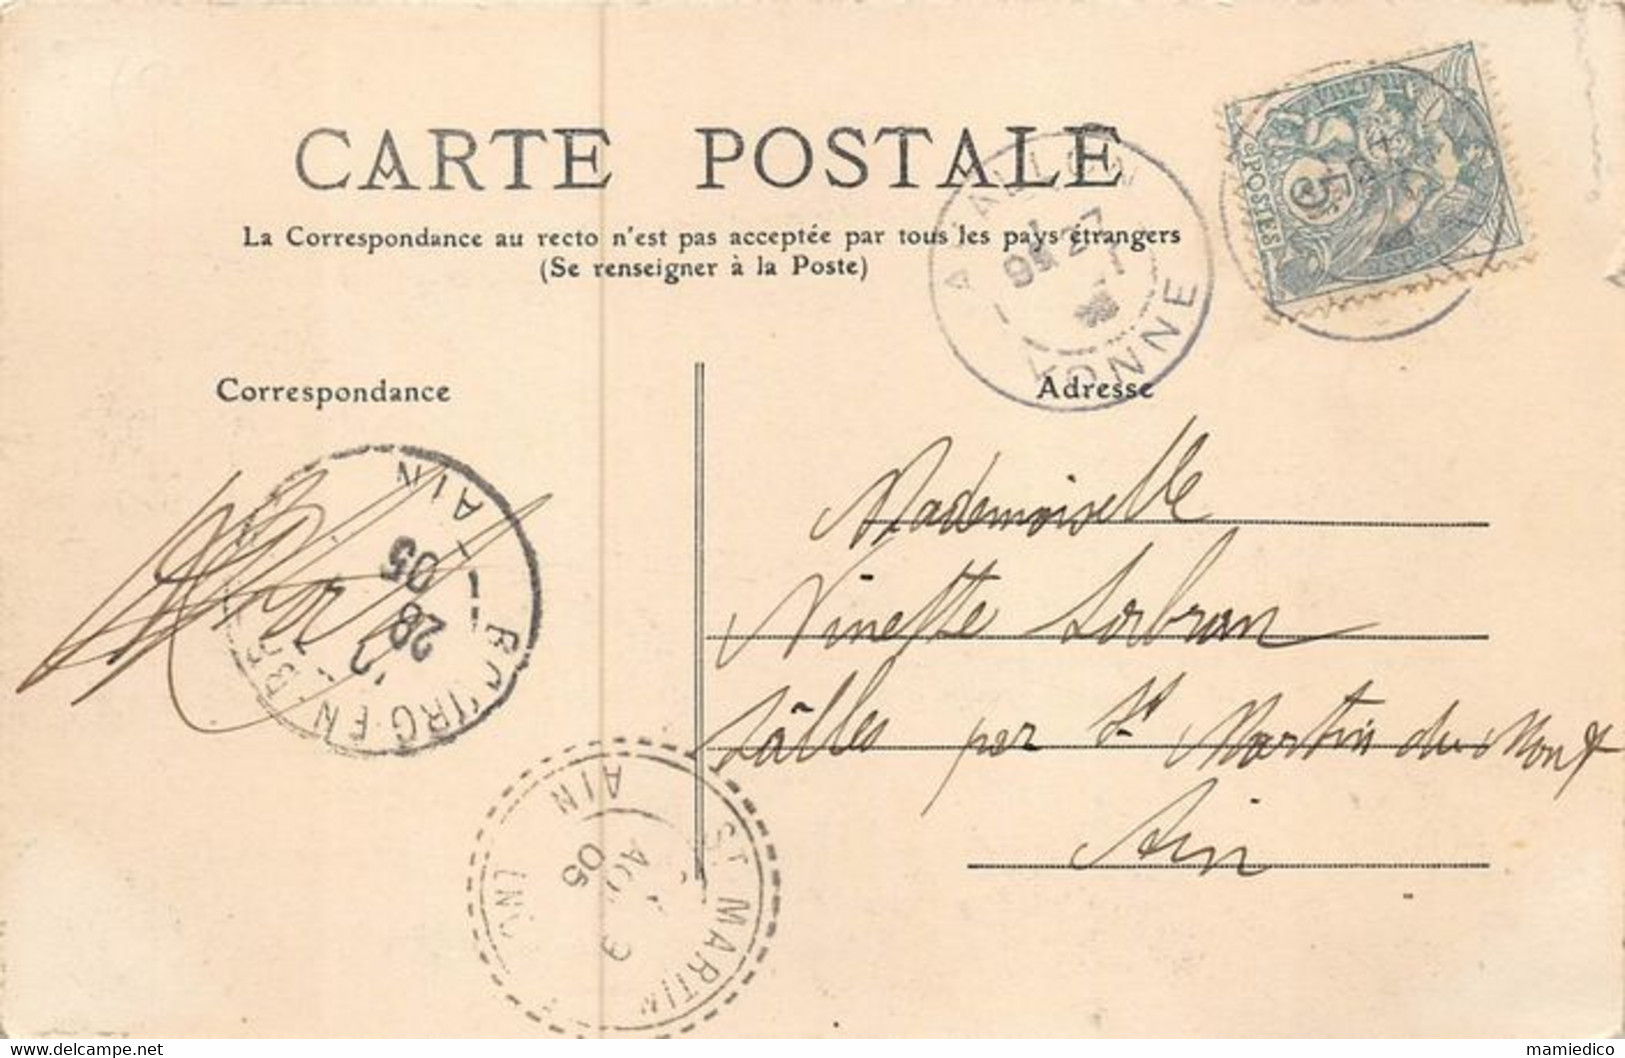 CARTE POSTALE
La Correspondance au recto n'est pas acceptée par tous les pays étrangers
(Se renseigner à la Poste)
AVALLON
YONNE
POSTES
5
Correspondance
Adresse
AIN
05
28
BOURG-EN-
Mademoiselle
Ninette Sorbran
Sâlles par St Martin du Mont
Ain
AIN
05
ST MARTIN
www.delcampe.net
mamiedico